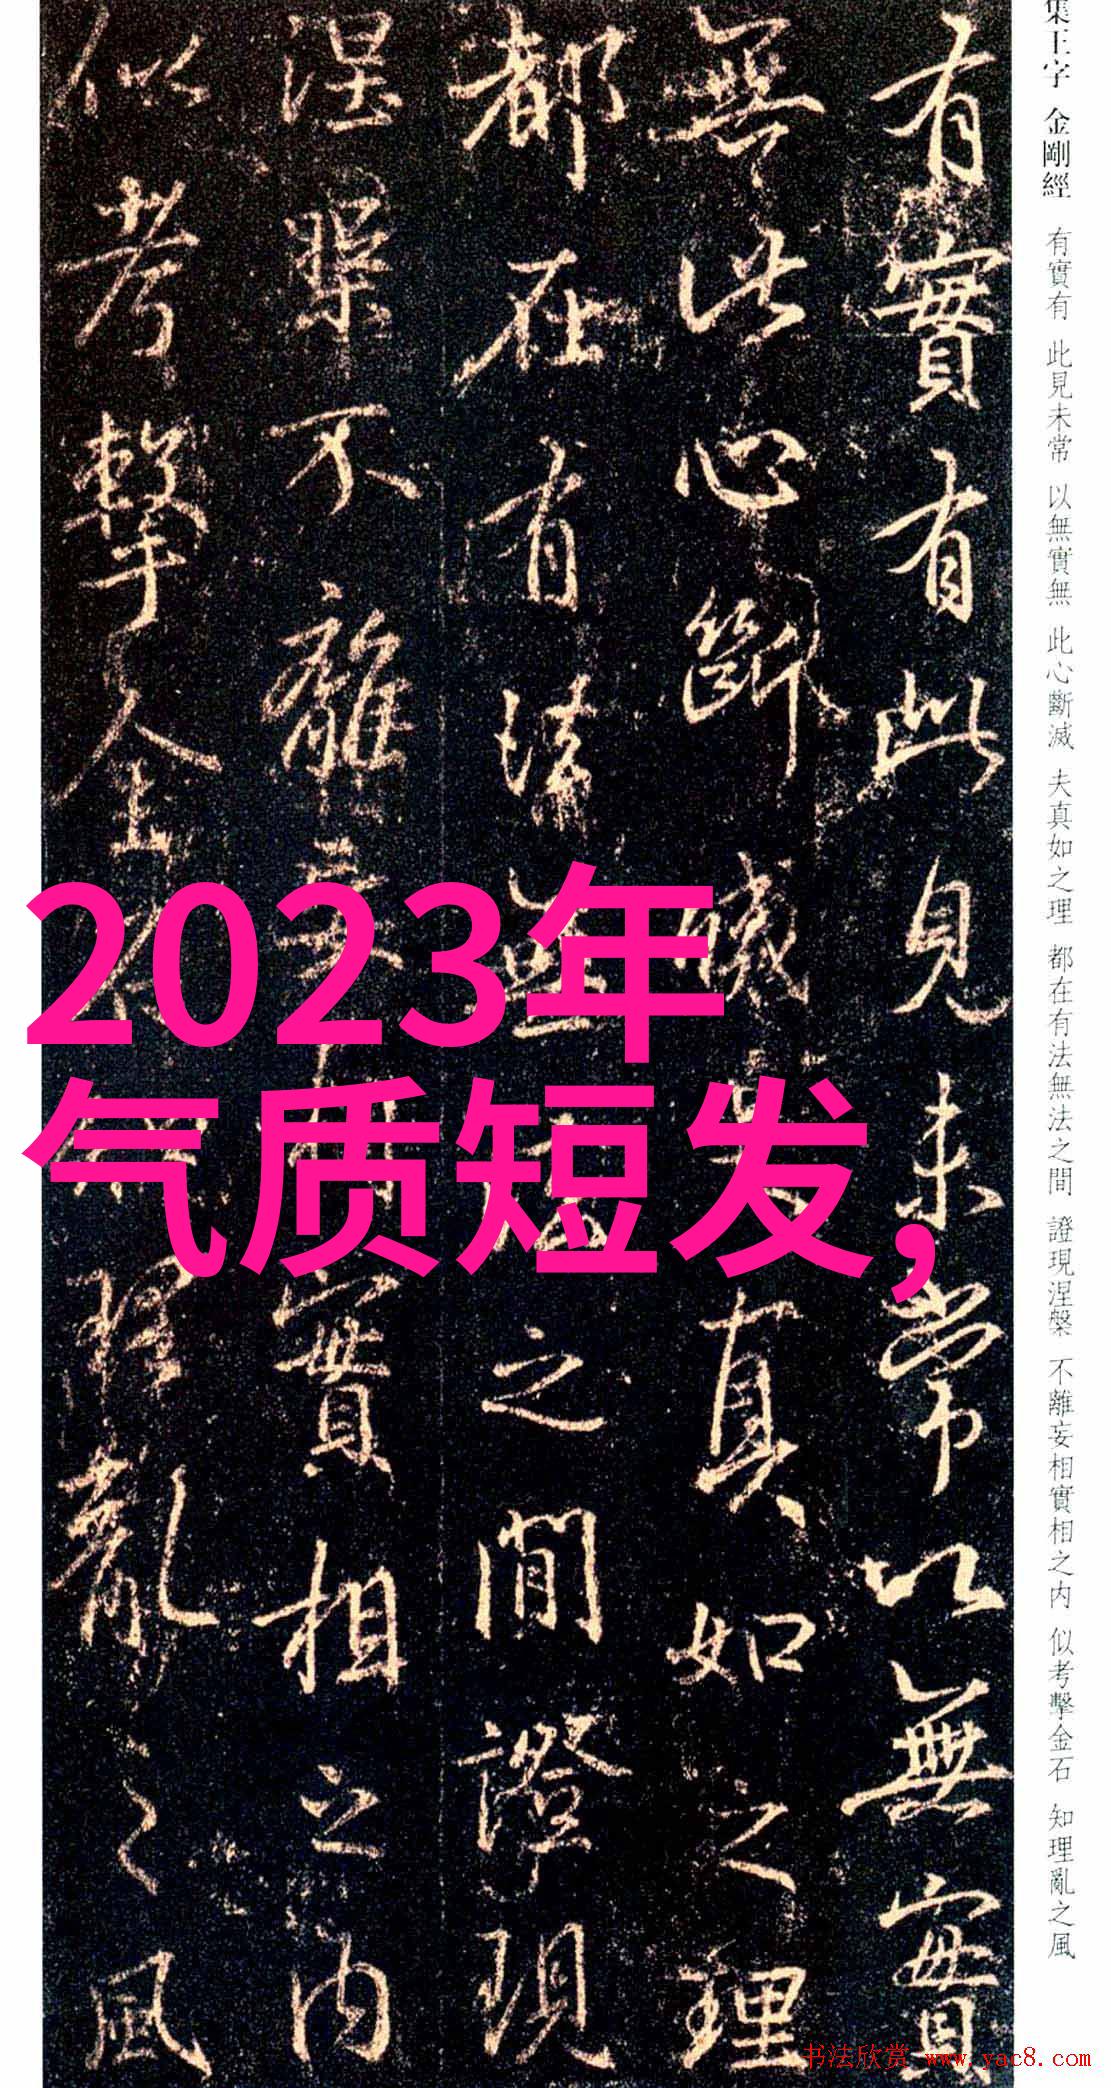 集王字 金剛經 有實有 此見未常 以無實無 此心斷滅 夫真如之理 都在有法無法之間 證現涅槃 不離妄相實相之内 似考擊金石 知理亂之風
有實有此見未常以無實
無此心斷滅夫真如之理
都在有法無法之間證現
涅槃不離妄相實相之内
似考擊金石知理亂之風
2023年
气质短发,
书法欣赏 www.yac8.com